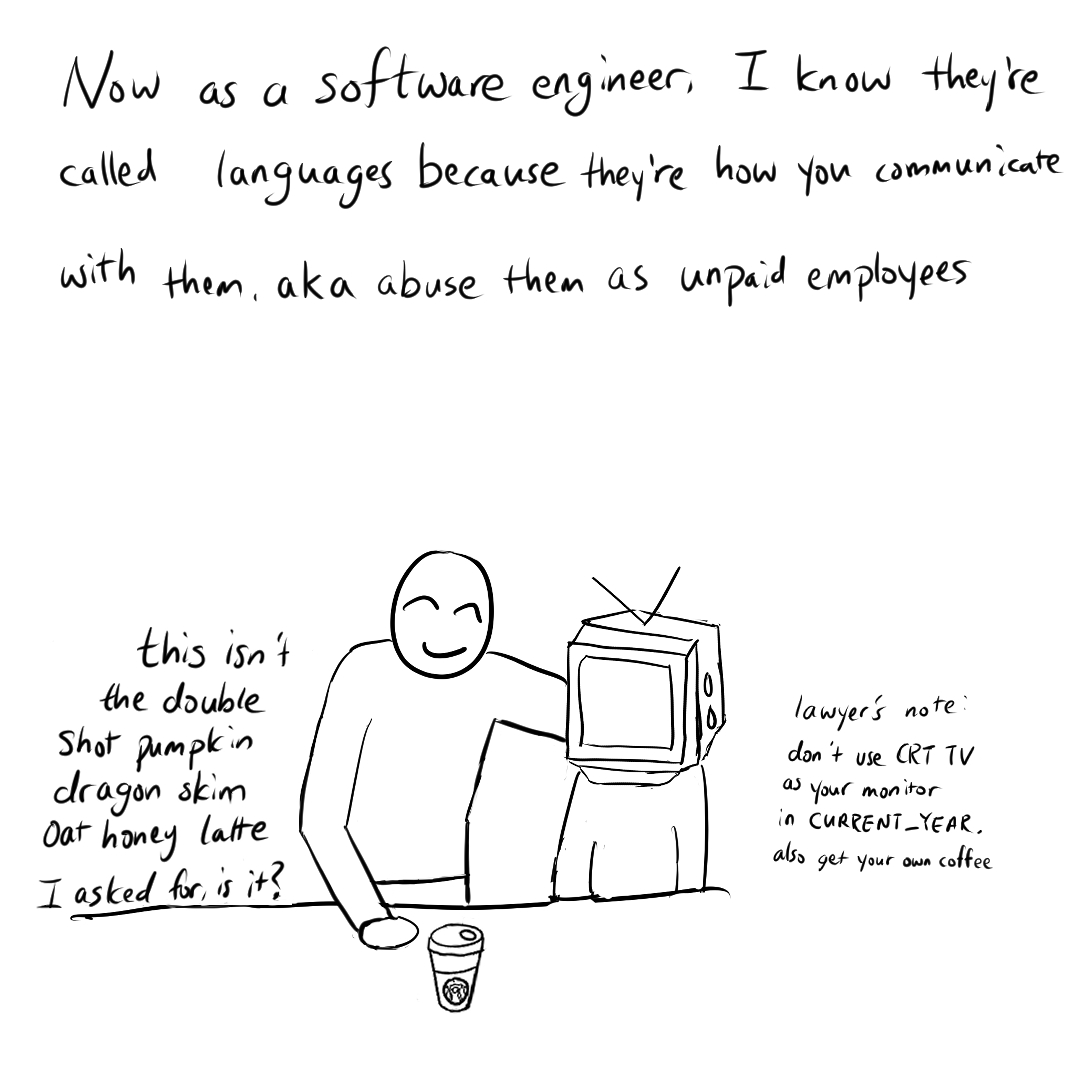 Now as a software engineer, I know they're
called languages because they're how you communicate
with them, aka abuse them as unpaid employees
this isn't
the double
shot pumpkin
dragon skim
oat honey latte
I asked for, is it?
lawyer's note:
don't use CRT TV
as your monitor
in CURRENT_YEAR.
also get your own coffee